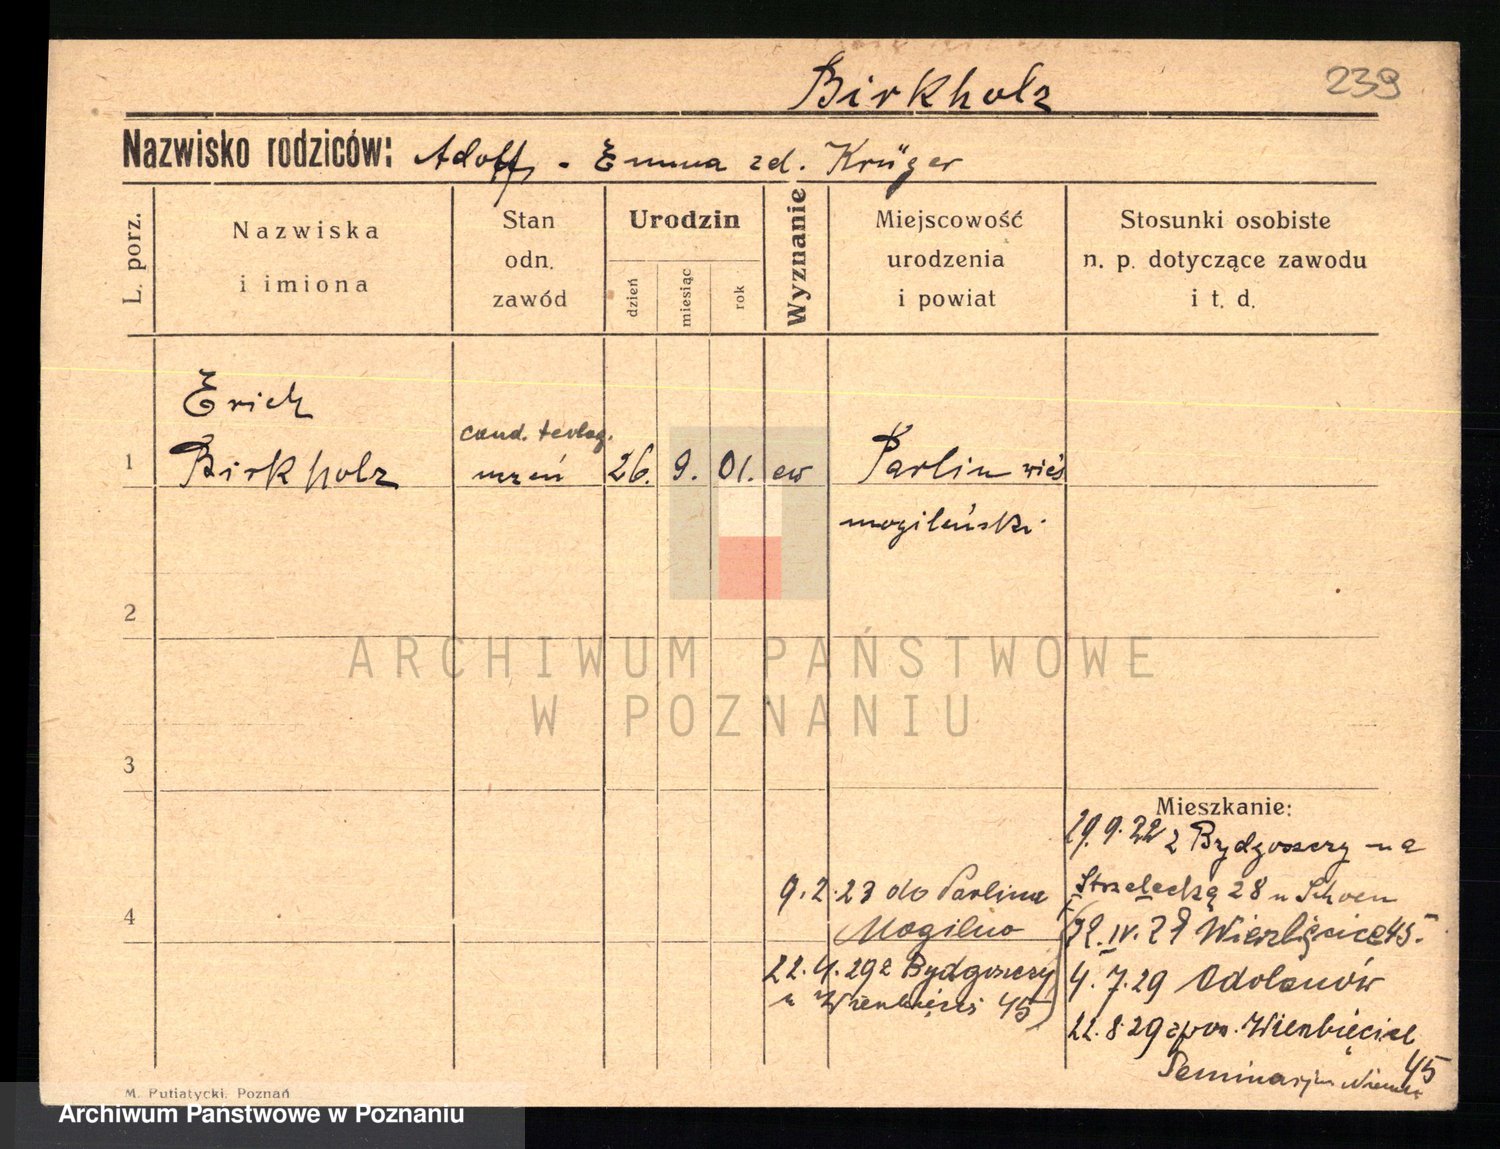 Birkholz
239
Nazwisko rodziców: Adolf - Emma zd. Krüger
L. porz.
Nazwiska
i imiona
Stan
odn.
zawód
Urodzin
dzień
miesiąc
rok
Wyznanie
Miejscowość
urodzenia
i powiat
Stosunki osobiste
n. p. dotyczące zawodu
i t. d.
Erich
cand. teolog.
1 Birkholz uczeń 26. 9. 01. ew Parlin wieś
mogileński
2
ARCHIWUM PAŃSTWOWE
W POZNANIU
3
Mieszkanie:
29.9.22 z Bydgoszczy na
Strzelecką 28 u Schoen
9.2.23 do Parlina
Mogilno
4
22.4.29 z Bydgoszczy
45
4.7.29 Odolanów
22.8.29
45
M. Putiatycki, Poznań
Archiwum Państwowe w Poznaniu